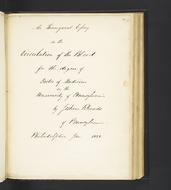 An Inaugural Essay
on the
Circulation of the Blood
for the degree of
Doctor of Medicine
in the
University of Pennsylvania
by
of Pennsylvania
Philadelphia Jan